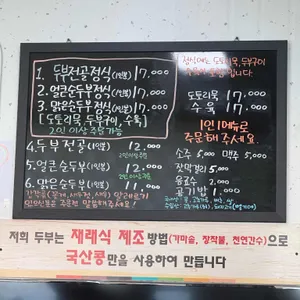 1. 두부전골정식(1인분) 17,000
2. 얼큰순두부정식(1인분) 17,000
3. 맑은순두부정식(1인분) 17,000
[도토리묵, 두부구이, 수육]
2인 이상 주문가능
4. 두부전골(1인분) 12,000
2인이상주문
5. 얼큰순두부(1인분) 12,000
6. 맑은순두부(1인분) 11,000
정식에는 도토리묵, 두부구이
도토리묵 17,000
수육 17,000
1인 1메뉴로
주문해주세요.
소주 5,000 맥주 5,000
잣막걸리 5,000
음료수 2,000
공기밥 1,000
저희 두부는 재래식 제조 방법(가마솥, 장작불, 천연간수)으로
국산콩만을 사용하여 만듭니다